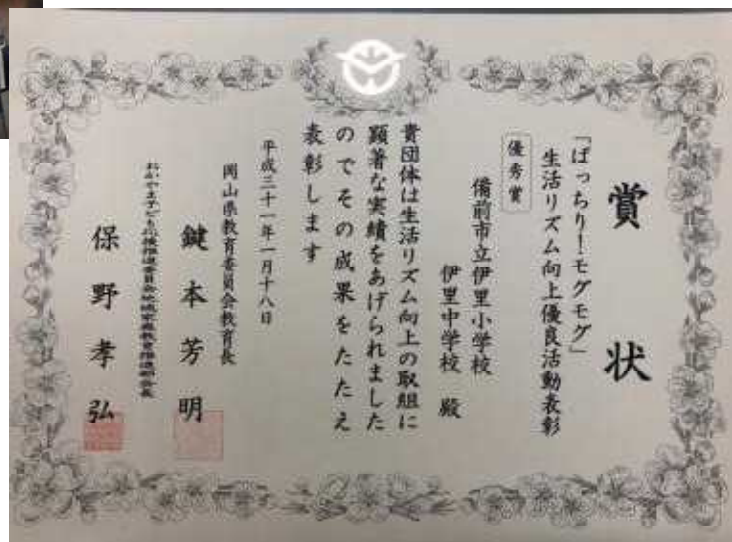 賞状
「ぱっちり！モグモグ」
生活リズム向上優良活動表彰
優秀賞
備前市立伊里小学校
伊里中学校 殿
貴団体は生活リズム向上の取組に
顕著な実績をあげられました
のでその成果をたたえ
表彰します
平成三十一年一月十八日
岡山県教育委員会教育長
鍵本芳明
おかやま子ども応援推進委員会地域家庭教育推進部会長
保野孝弘